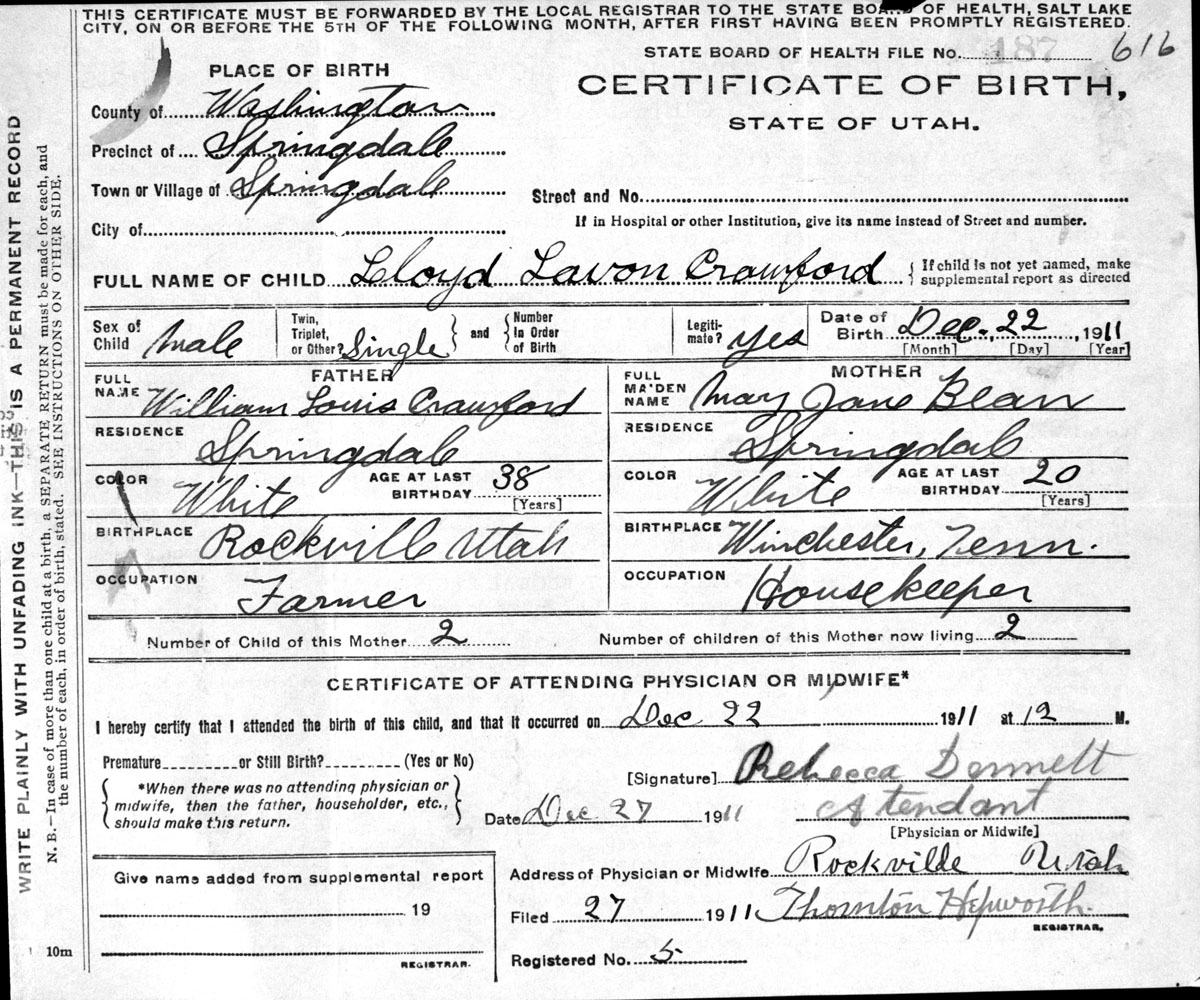 THIS CERTIFICATE MUST BE FORWARDED BY THE LOCAL REGISTRAR TO THE STATE BOARD OF HEALTH, SALT LAKE
CITY, ON OR BEFORE THE 5TH OF THE FOLLOWING MONTH, AFTER FIRST HAVING BEEN PROMPTLY REGISTERED.
STATE BOARD OF HEALTH FILE No. 187 616
PLACE OF BIRTH
CERTIFICATE OF BIRTH,
STATE OF UTAH.
County of Washington
Precinct of Springdale
Town or Village of Springdale
Street and No.
City of
If in Hospital or other Institution, give its name instead of Street and number.
FULL NAME OF CHILD Lloyd Lavon Crawford
{ If child is not yet named, make
supplemental report as directed
Sex of Child Male
Twin, Triplet, or Other? Single } and { Number In Order of Birth
Legitimate? Yes
Date of Birth Dec. 22, 1911
[Month] [Day] [Year]
FATHER
FULL NAME William Louis Crawford
RESIDENCE Springdale
COLOR White AGE AT LAST BIRTHDAY 38
[Years]
BIRTHPLACE Rockville Utah
OCCUPATION Farmer
MOTHER
FULL MAIDEN NAME Mary Jane Bean
RESIDENCE Springdale
COLOR White AGE AT LAST BIRTHDAY 20
[Years]
BIRTHPLACE Winchester, Tenn.
OCCUPATION Housekeeper
Number of Child of this Mother 2 Number of children of this Mother now living 2
CERTIFICATE OF ATTENDING PHYSICIAN OR MIDWIFE*
I hereby certify that I attended the birth of this child, and that it occurred on Dec 22 1911 at 12 M.
Premature or Still Birth? (Yes or No)
{ *When there was no attending physician or
midwife, then the father, householder, etc.,
should make this return. }
[Signature] Rebecca Dennett
Date Dec 27 1911 Attendant
[Physician or Midwife]
Address of Physician or Midwife Rockville Utah
Filed 27 1911 Thornton Hepworth
REGISTRAR.
Registered No. 5
Give name added from supplemental report
19
REGISTRAR.
10m
WRITE PLAINLY WITH UNFADING INK—THIS IS A PERMANENT RECORD
N. B.—In case of more than one child at a birth, a SEPARATE RETURN must be made for each, and
the number of each, in order of birth, stated. SEE INSTRUCTIONS ON OTHER SIDE.